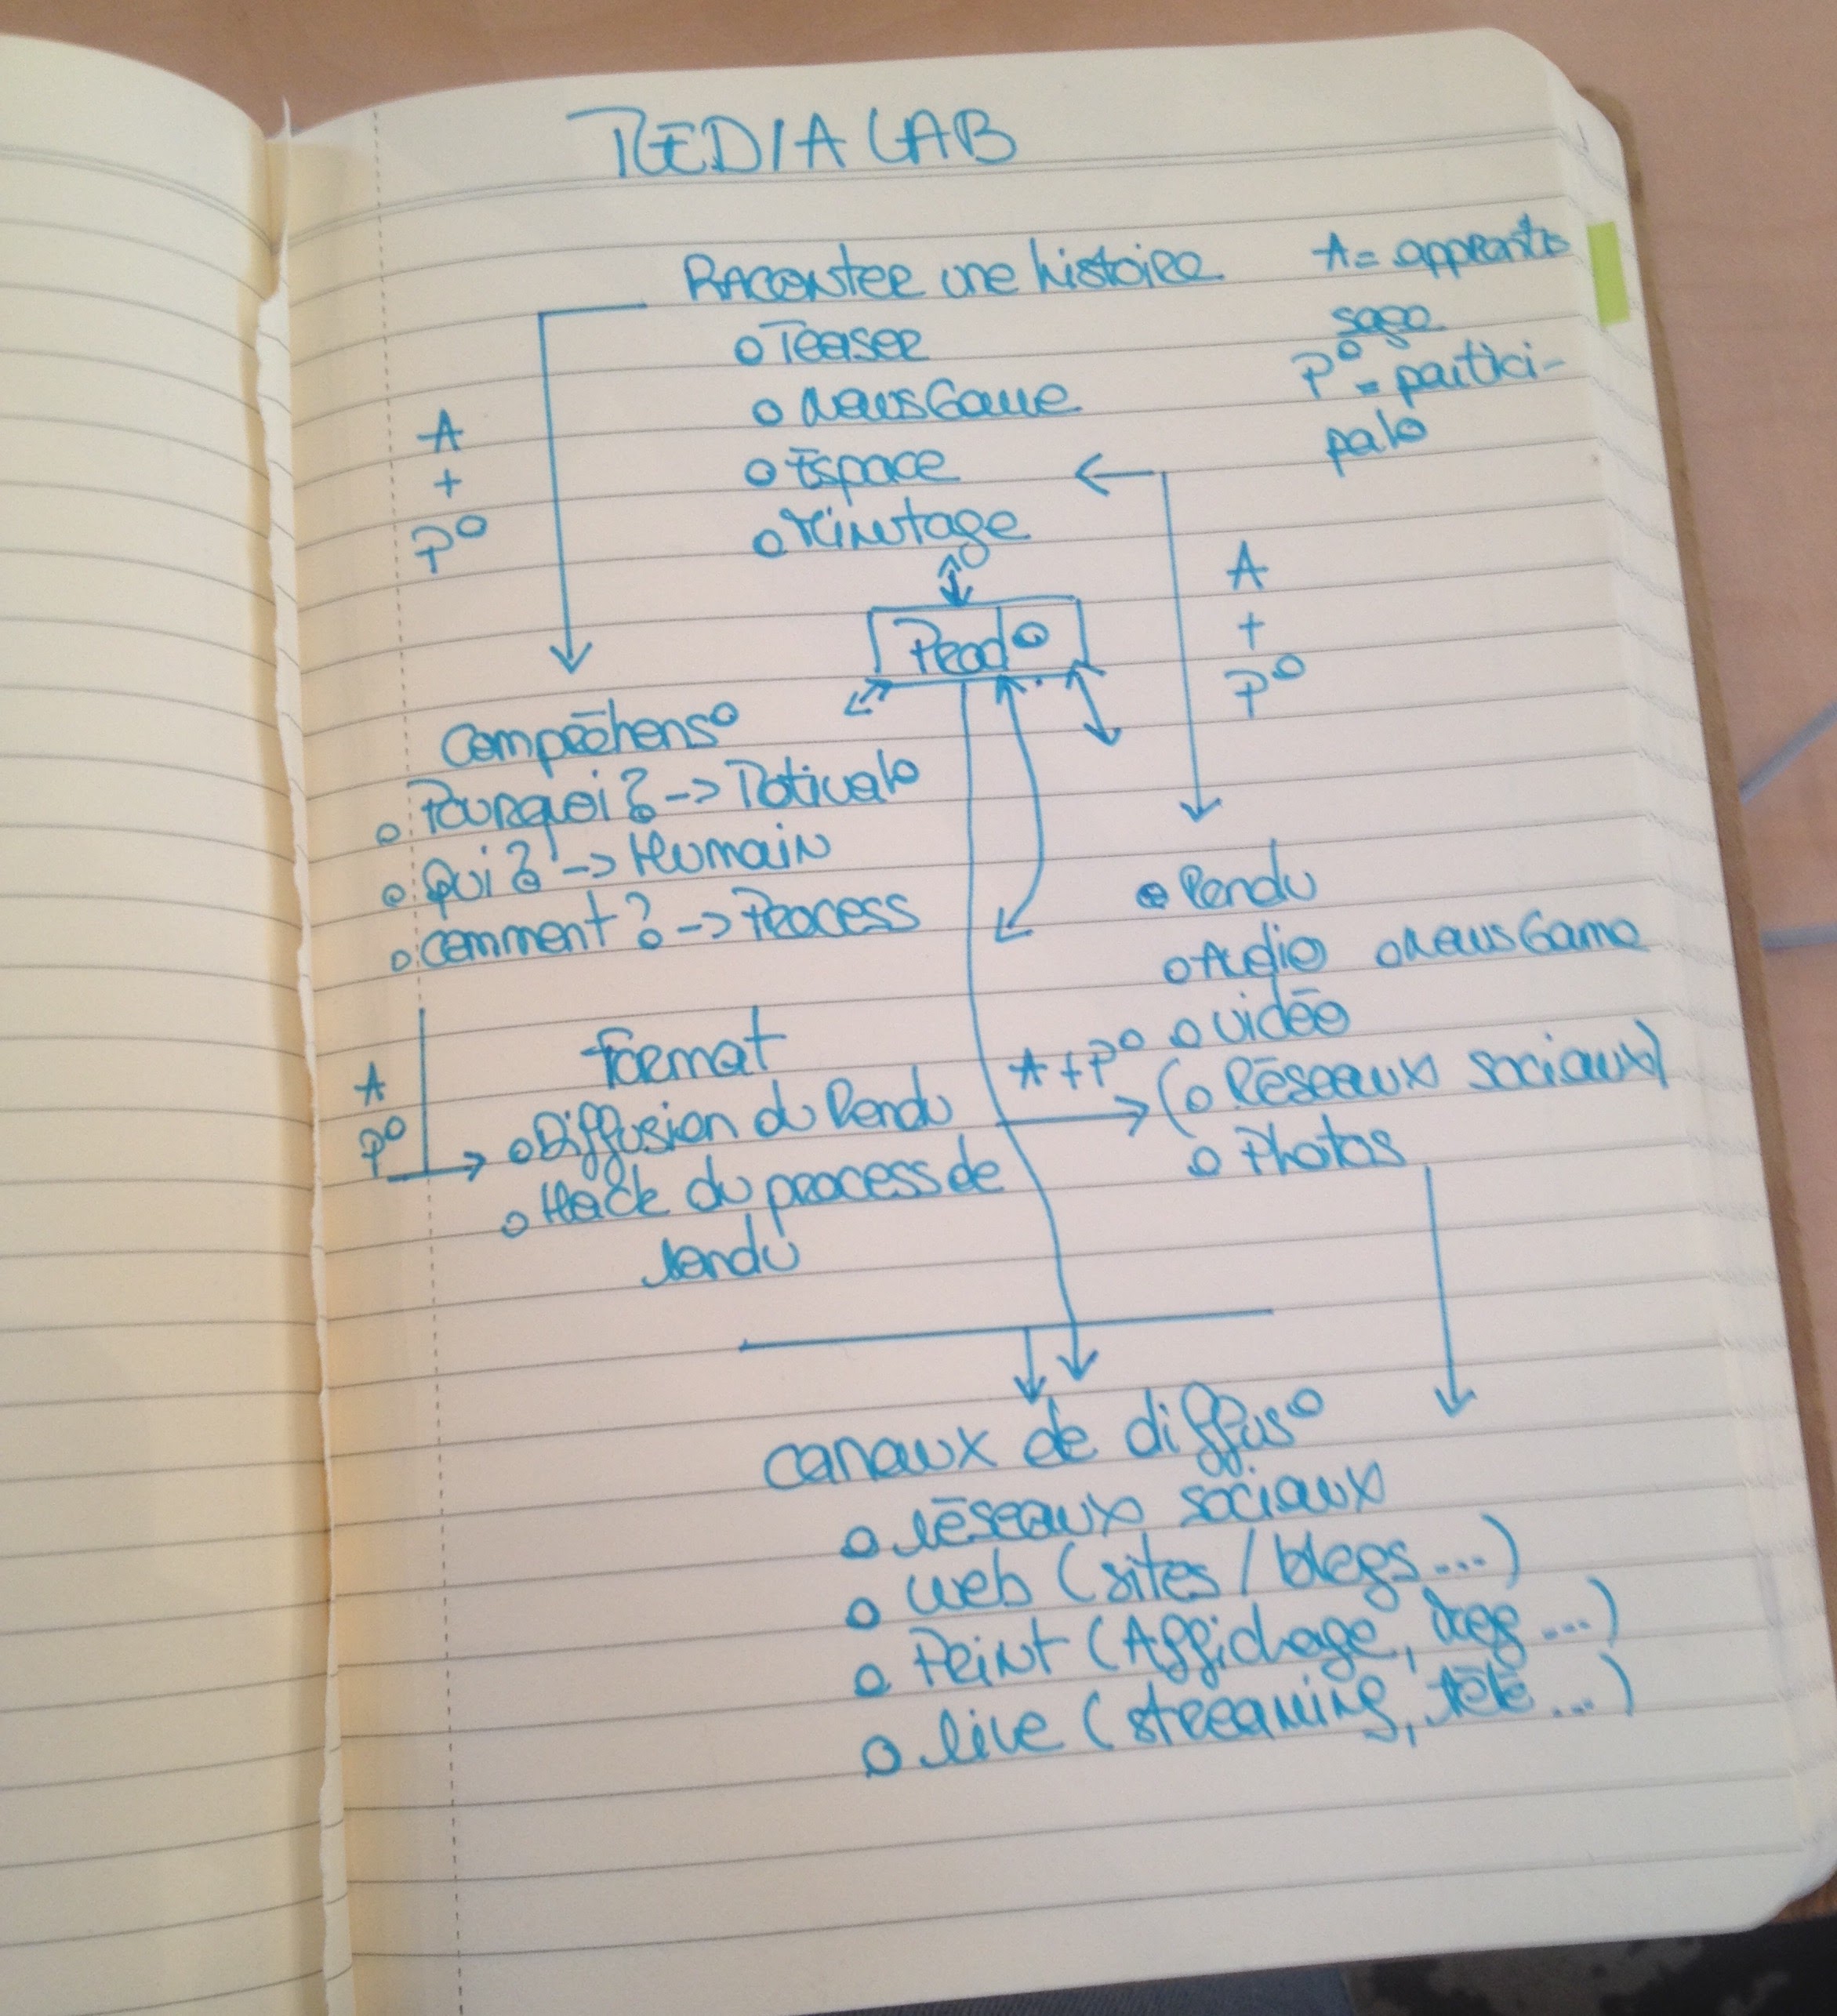 MEDIALAB
Raconter une histoire
A = apprentis
sage
P° = partici-
pat°
o Teaser
o NewsGame
o Espace
o Minutage
A
+
P°
Prod°
A
+
P°
Compréhens°
o Pourquoi? -> Motivat°
o Qui? -> Humain
o Comment? -> Process
o Rendu
o Audio o NewsGame
o vidéo
(o Réseaux sociaux)
o Photos
A + P°
A
P°
Format
o Diffusion du Rendu
o Hack du process de
rendu
Canaux de diffus°
o réseaux sociaux
o Web (sites / blogs ...)
o Print (Affichage, ...)
o live (streaming, télé ...)